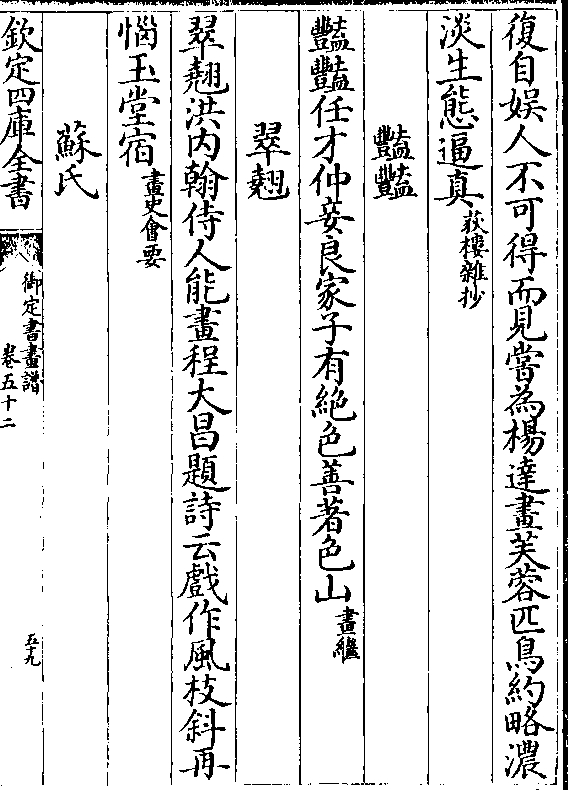 復自娛人不可得而見嘗為楊達畫芙蓉匹鳥約略濃
淡生態逼真荻樓雜抄
豔豔
豔豔任才仲妾良家子有絶色善著色山畫繼
翠翹
翠翹洪内翰侍人能畫程大昌題詩云戲作風枝斜再
惱玉堂宿畫史會要
蘇氏
欽定四庫全書
御定書畫譜
卷五十二
五十九